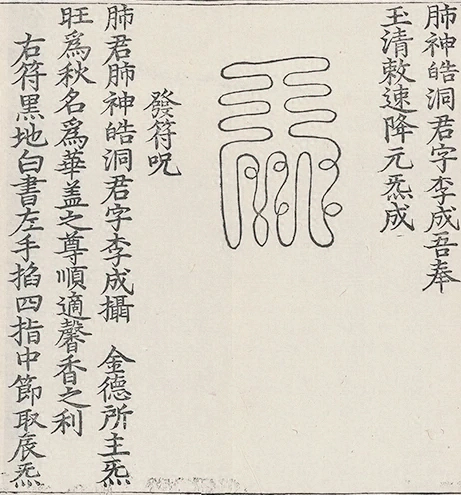 肺神皓洞君字李成吾奉
玉清敕速降元炁成
發符呪
肺君肺神皓洞君字李成攝　金德所主炁
旺爲秋名爲華盖之尊順適馨香之利
右符黑地白書左手掐四指中節取辰炁